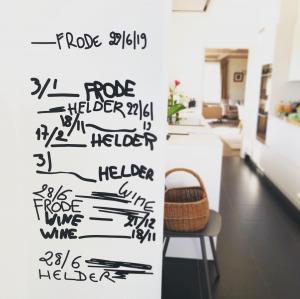 FRODE 29/6/19
3/1 FRODE
HELDER 22/6/
18/11 19
17/2 HELDER
3/ HELDER
28/6 WINE
FRODE
WINE 21/12
WINE 18/11
28/6
HELDER